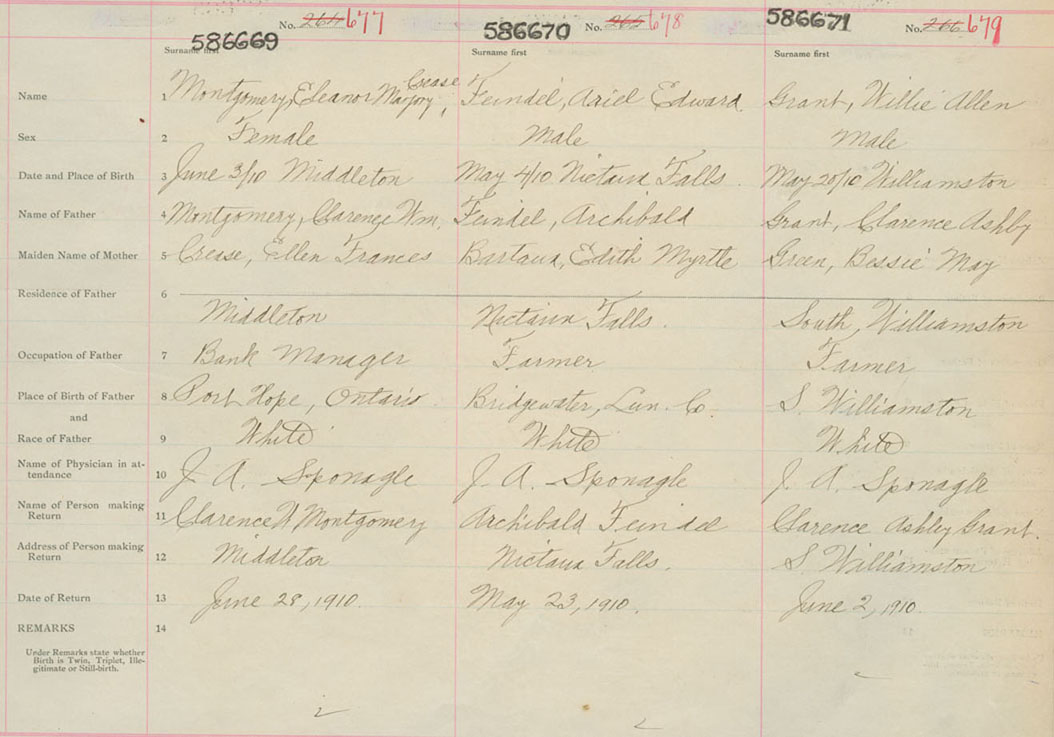 No. 264 677 No. 265 678 No. 266 679
586669 586670 586671
Surname first Surname first Surname first
Crease
Name 1 Montgomery, Eleanor Marjory, Feindel, Ariel Edward Grant, Willie Allen
Sex 2 Female Male Male
Date and Place of Birth 3 June 3/10 Middleton May 4/10 Nictaux Falls. May 20/10 Williamston
Name of Father 4 Montgomery, Clarence Wm. Feindel, Archibald Grant, Clarence Ashby
Maiden Name of Mother 5 Crease, Ellen Frances Bartaux, Edith Myrtle Green, Bessie May
Residence of Father 6
Middleton Nictaux Falls. South, Williamston
Occupation of Father 7 Bank Manager Farmer Farmer
Place of Birth of Father 8 Port Hope, Ontario Bridgewater, Lun. Co. S. Williamston
and
Race of Father 9 White White White
Name of Physician in at-
tendance 10 J. A. Sponagle J. A. Sponagle J. A. Sponagle
Name of Person making
Return 11 Clarence W Montgomery Archibald Feindel Clarence Ashley Grant.
Address of Person making
Return 12 Middleton Nictaux Falls. S. Williamston
Date of Return 13 June 28, 1910. May 23, 1910. June 2, 1910.
REMARKS 14
Under Remarks state whether
Birth is Twin, Triplet, Ille-
gitimate or Still-birth.